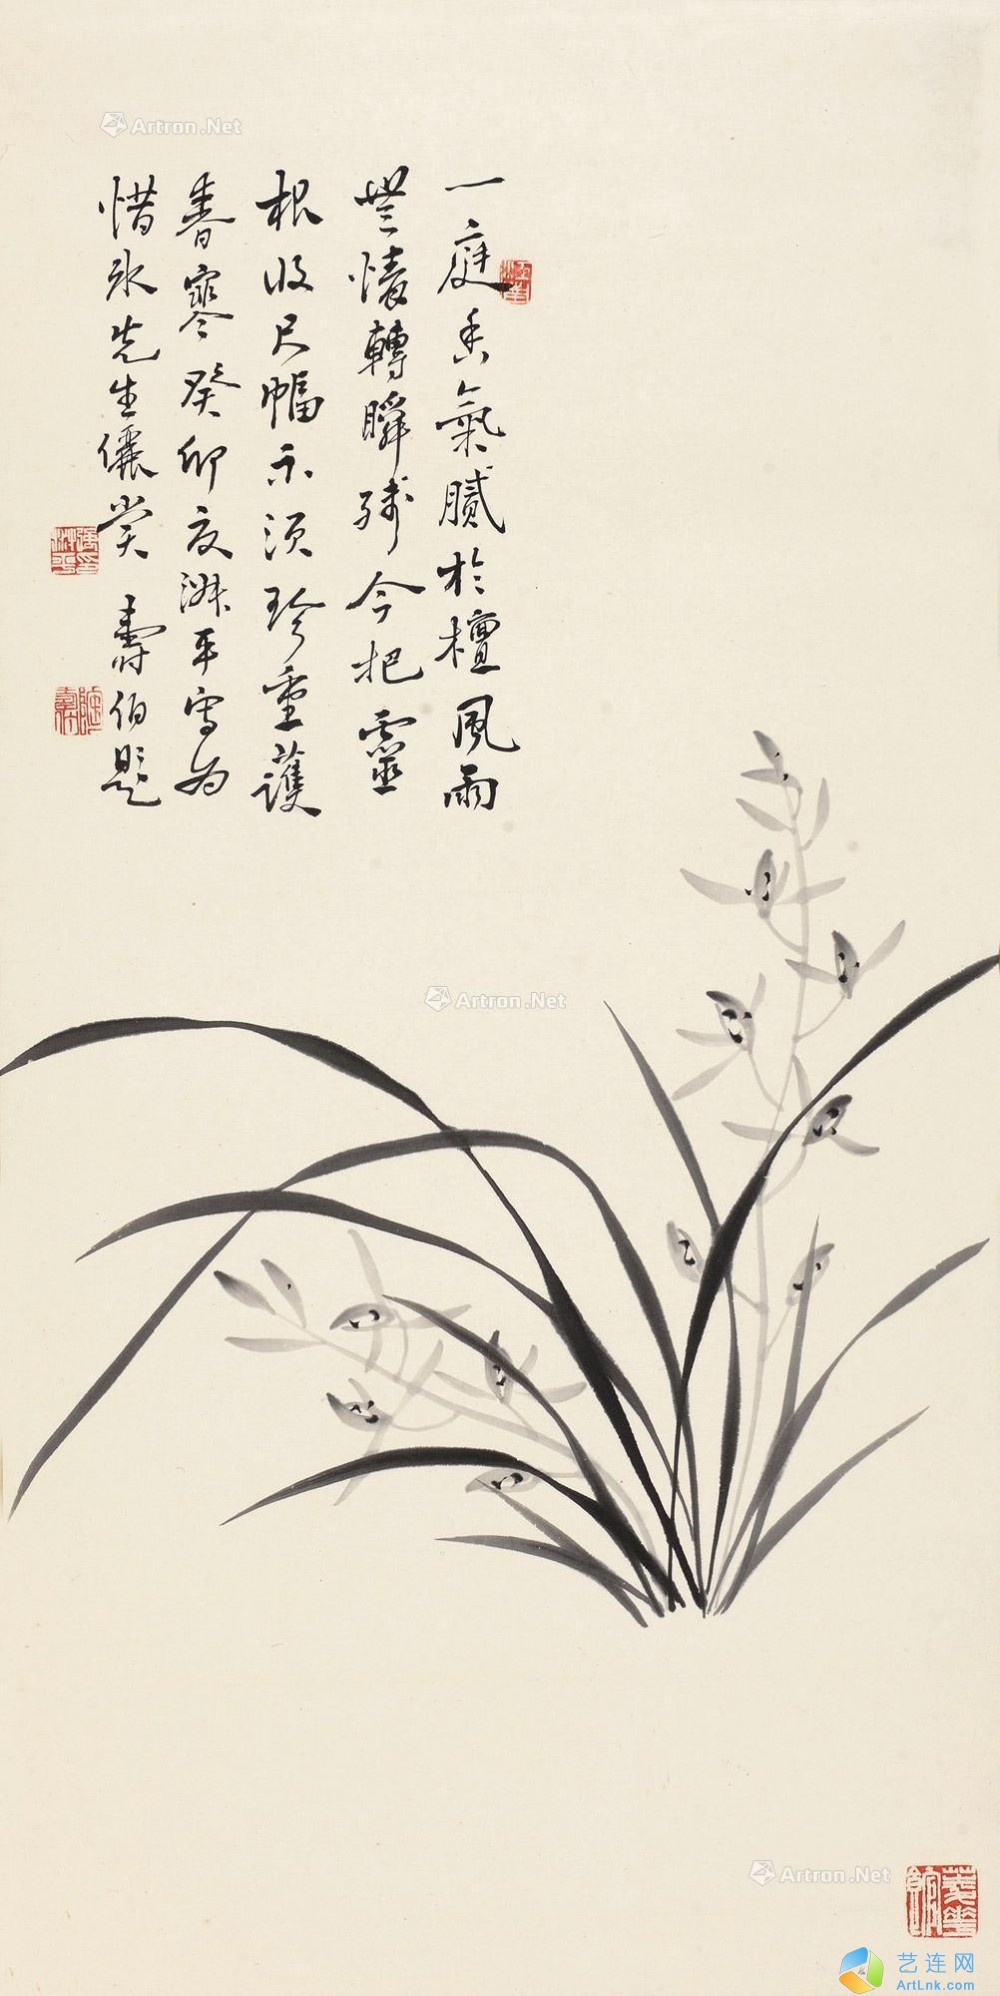 一庭香氣膩於檀風雨
無情轉瞬殘今把靈
根收尺幅不須珍重護
春寒癸卯夜淑平寫為
惜冰先生儷賞 壽伯題
Artron.Net
Artron.Net
Artron.Net
艺连网
ArtLnk.com